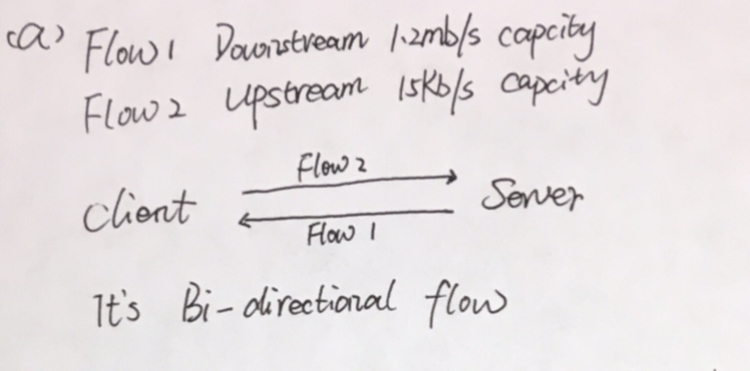 (a) Flow 1 Downstream 1.2mb/s capcity
Flow 2 Upstream 15Kb/s capcity
Flow 2
Client Server
Flow 1
It's Bi-directional flow